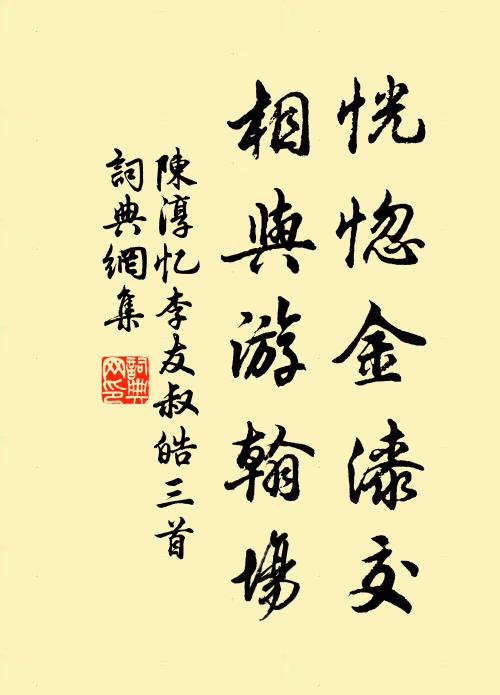 恍惚金漆交
相與游翰場
陳淳忆李友叔皓三首
詞典網集
詞典網印